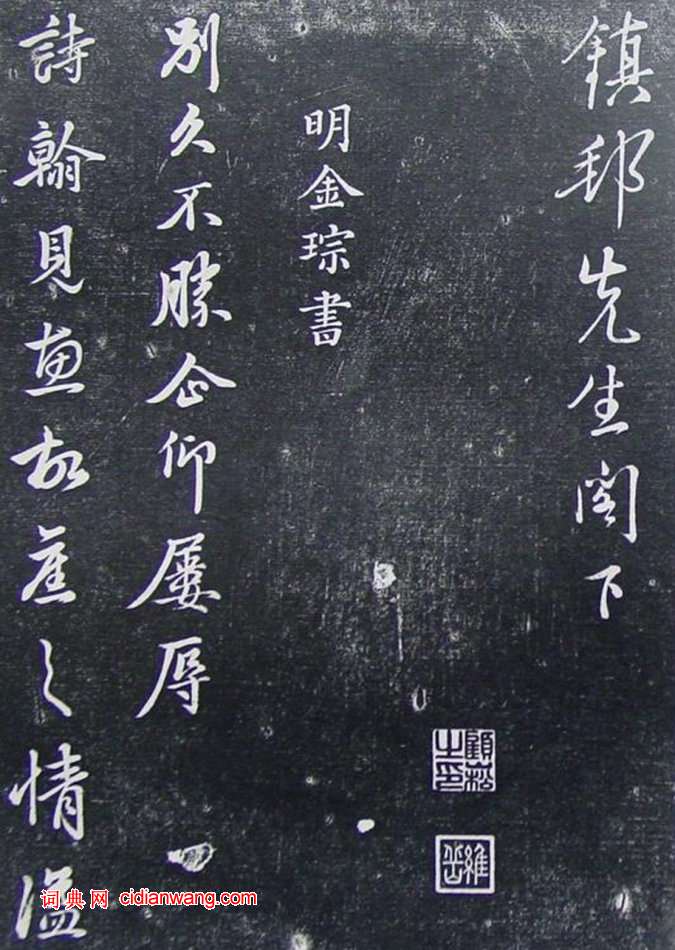 鎮邦先生閣下
顧崧之印
明金琮書
別久不勝企仰屢辱
詩翰見惠故舊之情溢
词典网 cidianwang.com